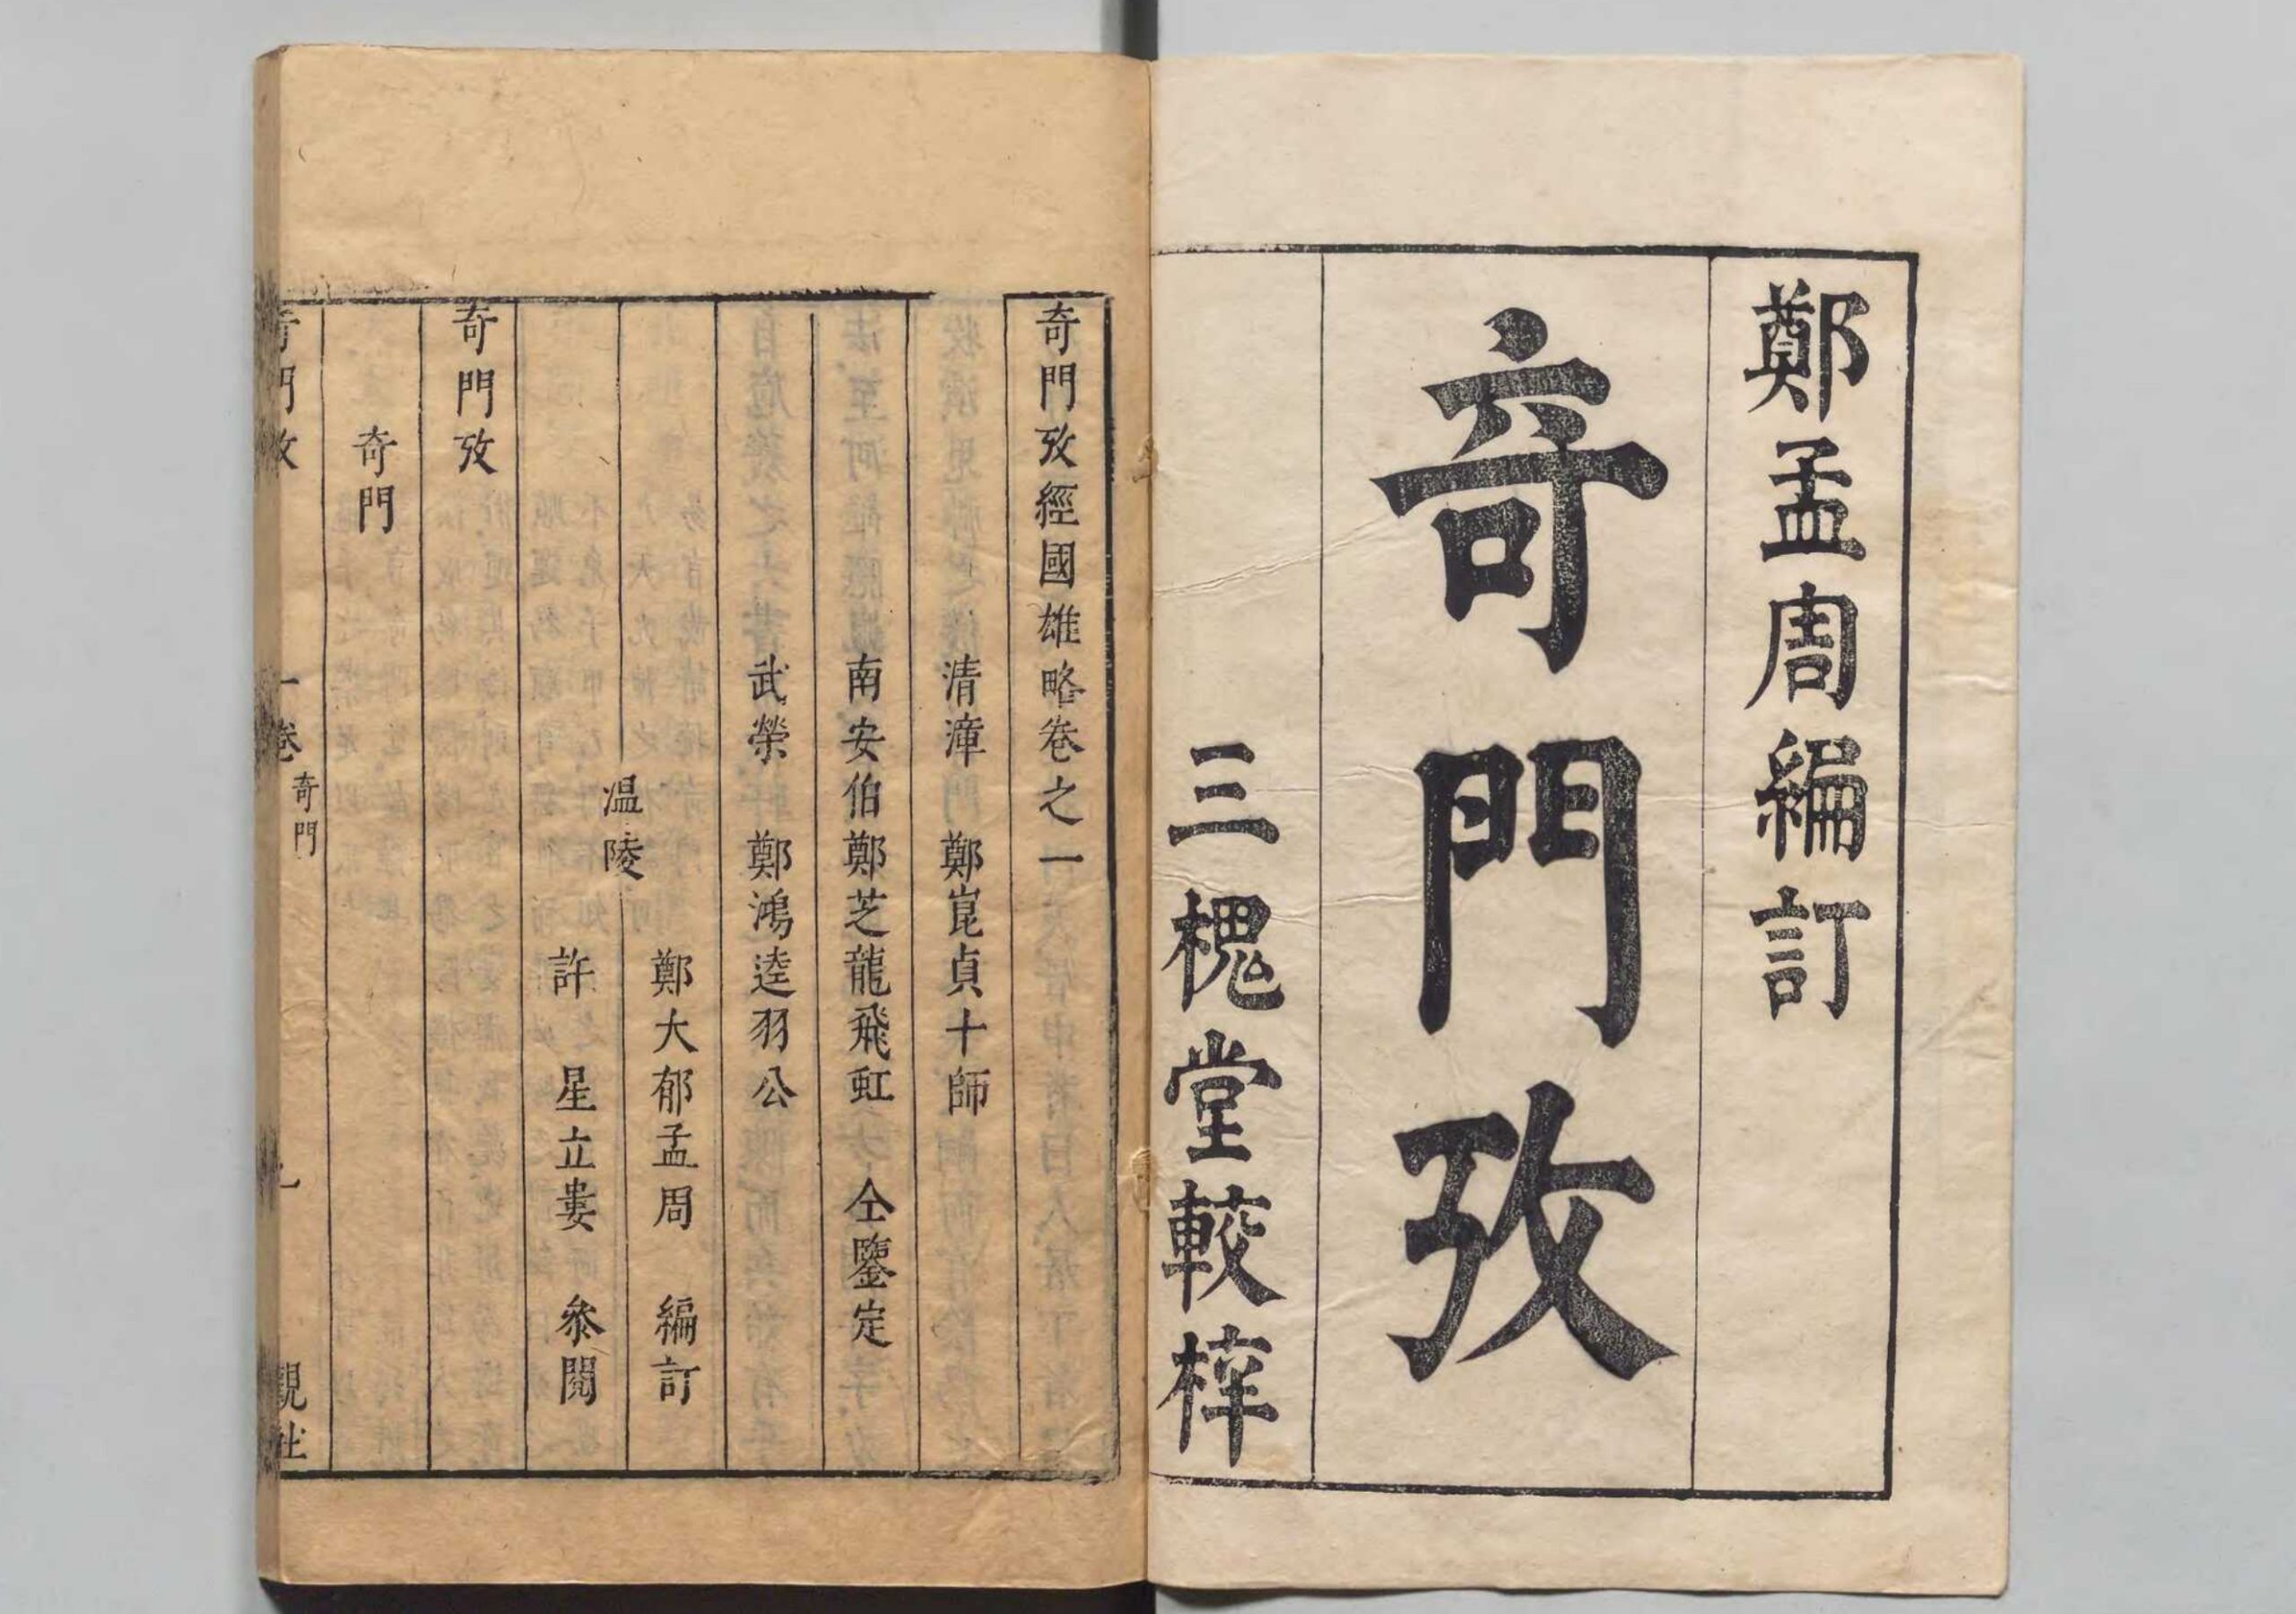 鄭孟周編訂
奇門攷
三槐堂較梓
奇門攷經國雄略卷之一
清漳　鄭崑貞十師
南安伯鄭芝龍飛虹　仝鑒定
武榮　鄭鴻逵羽公
溫陵
鄭大郁孟周　編訂
許　星立婁　叅閱
奇門攷
奇門
奇門攷　一卷　奇門　觀社